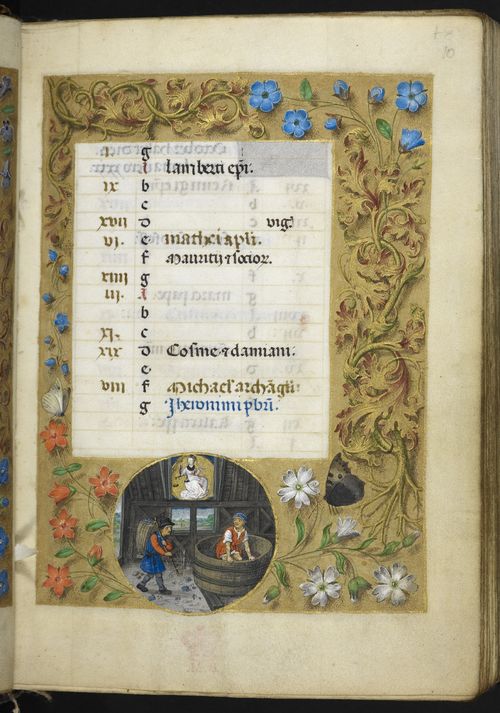 10
I g
A Lamberti ep̄i.
IX b
c
XVII D viḡ
VI. e Mathei ap̄li.
f Mauritii ⁊ socior̄.
XIIII g
III. A
b
XI. c
XIX D Cosme ⁊ damiani.
e
VIII f Michael' archāḡli
g Jheronimi p̄br̄i.